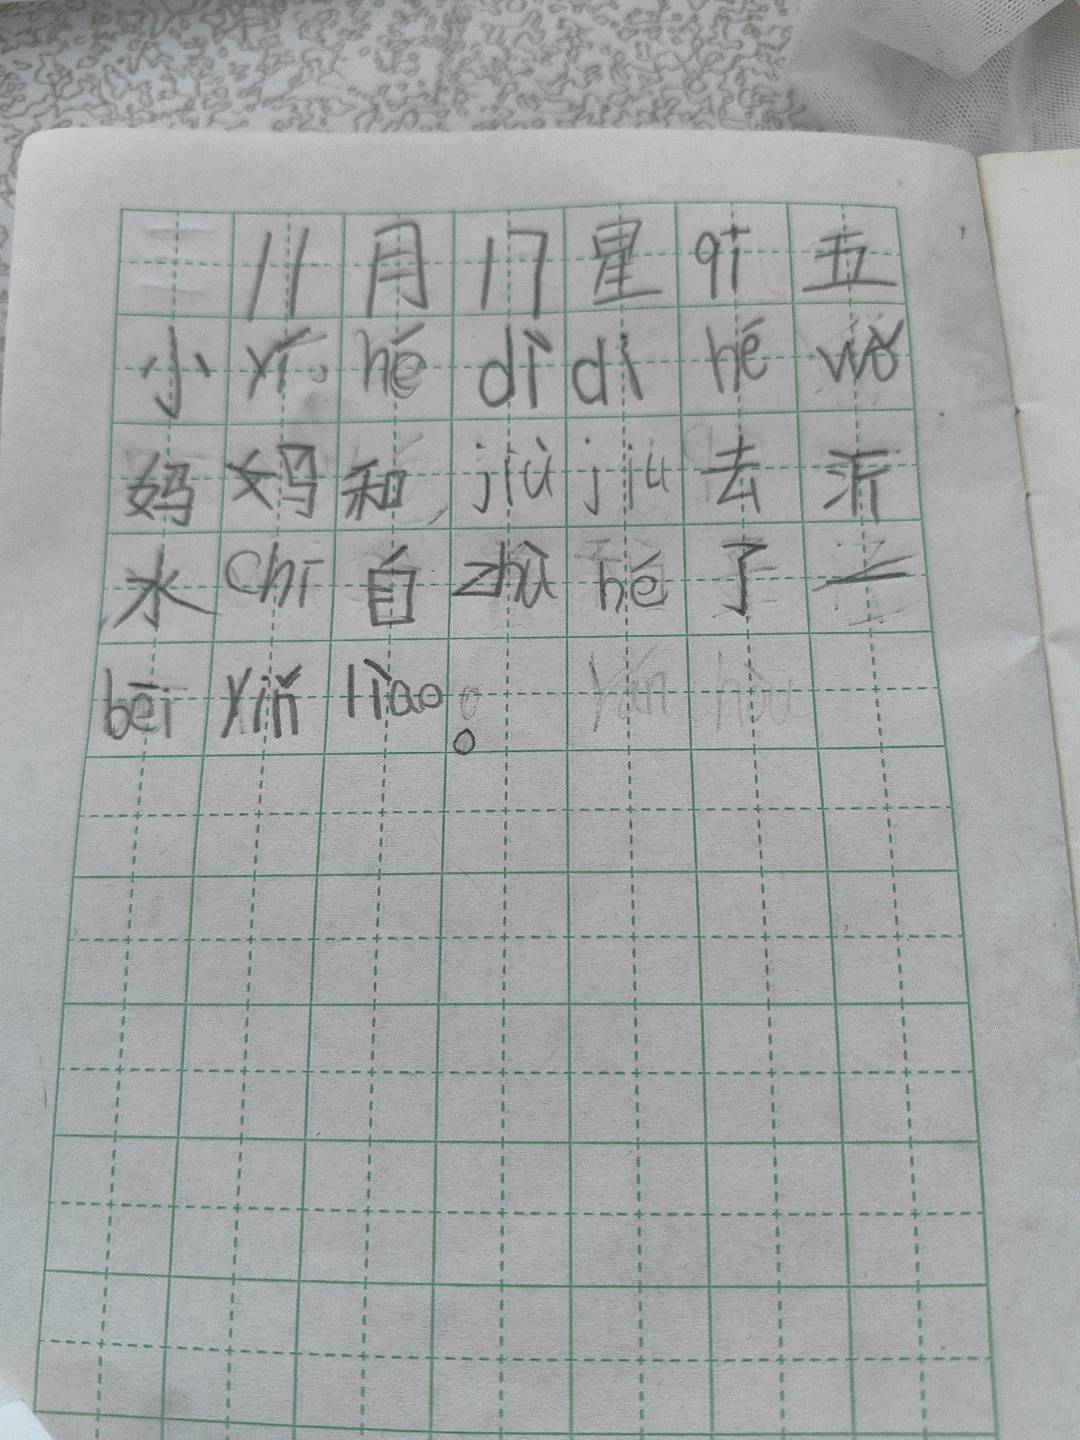 11月17星qī五
小yí。hé dì di hé wǒ
妈妈和jiù jiu去沂
水chī自zhù hé了三
bēi yǐn liào。